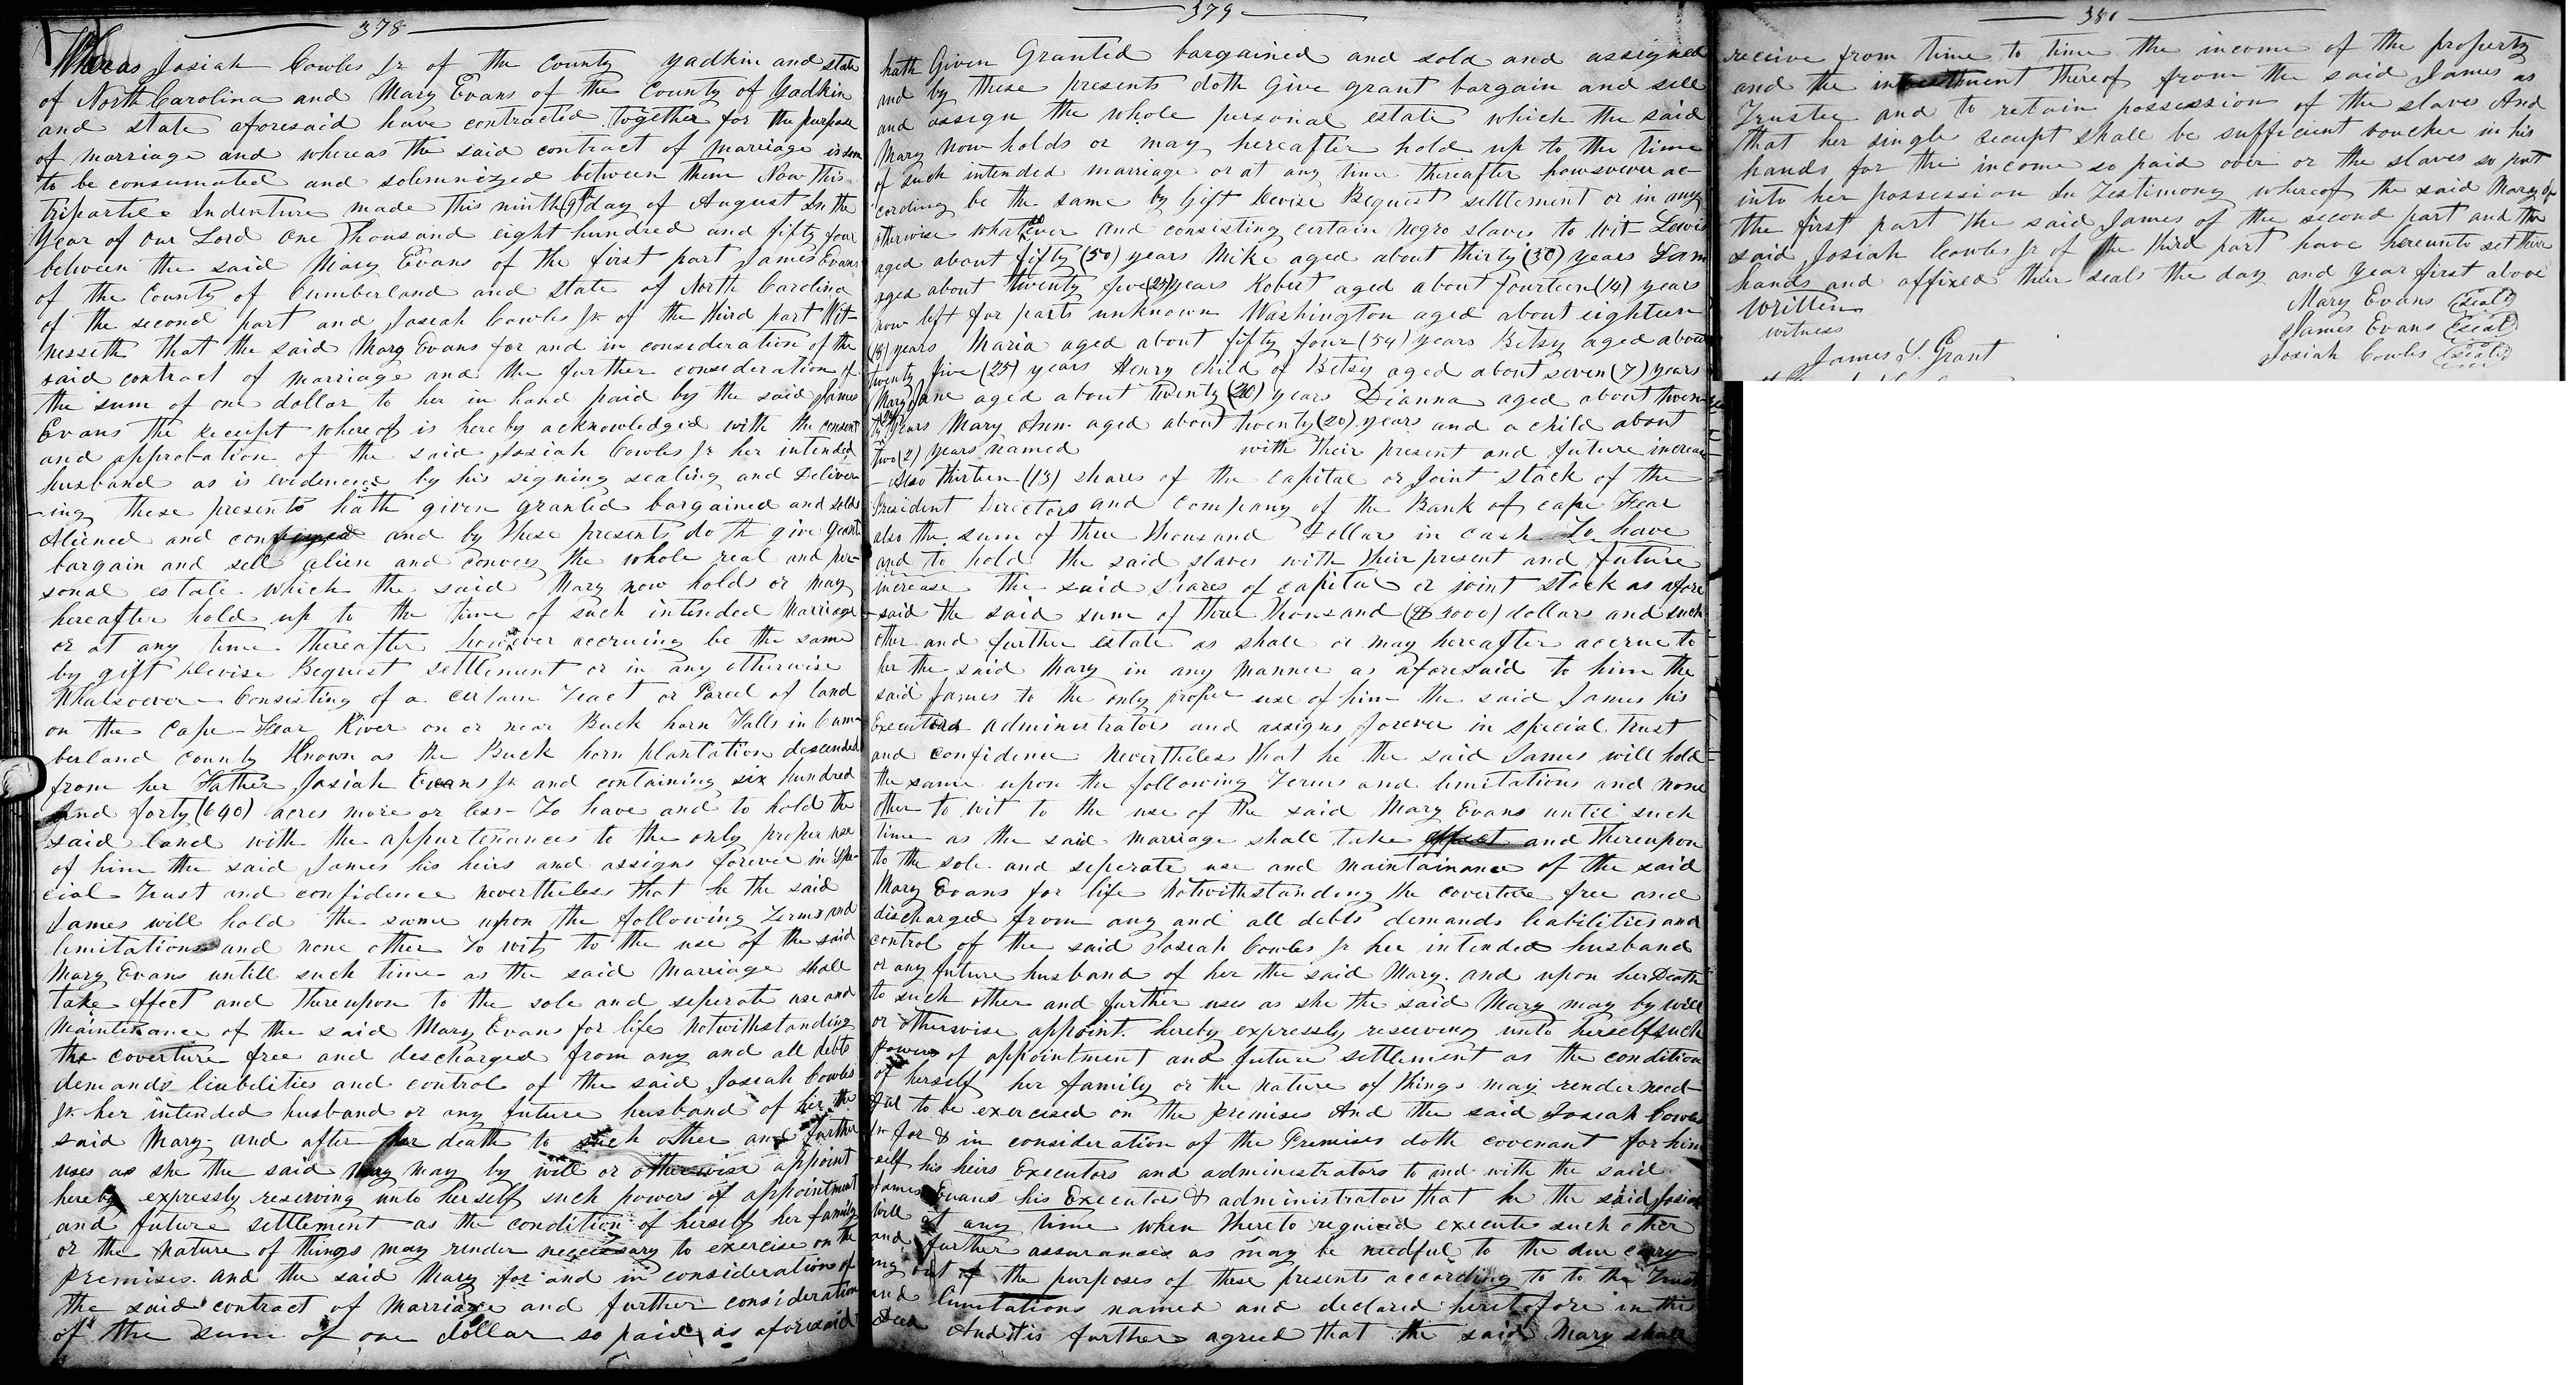 378
Whereas Josiah Cowles Jr of the County Yadkin and state
of North Carolina and Mary Evans of the County of Yadkin
and state aforesaid have contracted together for the purpose
of marriage and whereas the said contract of marriage is soon
to be consumated and solemnized between them Now This
tripartite Indenture made this ninth (9th) day of August In the
Year of Our Lord One Thousand eight hundred and fifty four
between the said Mary Evans of the first part James Evans
of the County of Cumberland and State of North Carolina
of the second part and Josiah Cowles Jr of the third part Wit-
nesseth that the said Mary Evans for and in consideration of the
said contract of marriage and the further consideration of
the sum of one dollar to her in hand paid by the said James
Evans the receipt whereof is hereby acknowledged with the consent
and approbation of the said Josiah Cowles Jr her intended
husband as is evidenced by his signing sealing and Deliver
-ing these presents hath given granted bargained and sold
Aliened and and by these presents doth give grant
bargain and sell alien and convey the whole real and per-
sonal estate which the said Mary now holds or may
hereafter hold up to the time of such intended Marriage
or at any time thereafter howsoever accruing be the same
by gift Devise Bequest settlement or in any otherwise
Whatsoever – Consisting of a certain Tract or Parcel of land
on the Cape-Fear River on or near Buck horn Falls in Cum-
berland County Known as the Buck horn plantation descended
from her Father Josiah Evans Jr and containing six hundred
and forty (640) acres more or less – To have and to hold the
said land with the appurtenances to the only proper use
of him the said James his heirs and assigns forever in Spe-
cial Trust and confidence nevertheless that he the said
James will hold the same upon the following Terms and
limitations and none other To wit, to the use of the said
Mary Evans untill such time as the said Marriage shall
take effect and thereupon to the sole and seperate use and
Maintenance of the said Mary Evans for life Notwithstanding
the coverture free and descharged from any and all debts
demands liabilities and control of the said Josiah Cowles
Jr her intended husband or any future husband of her the
said Mary and after her death to such other and further
uses as she the said Mary may by will or otherwise appoint
hereby expressly reserving unto herself such powers of appointment
and future settlement as the condition of herself her family
or the nature of things may render necessary to exercise on the
premises. and the said Mary for and in consideration of
the said contract of marriage and further consideration
of the sum of one dollar so paid as aforesaid
379
hath Given Granted bargained and sold and assigned
and by these presents doth Give grant bargain and sell
and assign the whole personal estate which the said
Mary now holds or may hereafter hold up to the time
of such intended marriage or at any time thereafter howsoever ac-
cording be the same by Gift Devise Bequest settlement or in any
otherwise whatsoever and consisting certain Negro slaves to wit Lewis
aged about fifty (50) years Mike aged about thirty (30) years Sam
aged about twenty five (25) years Robert aged about fourteen (14) years
now left for parts unknown Washington aged about eighteen
(18) years Maria aged about fifty four (54) years Betsy aged about
twenty five (25) years Henry child of Betsy aged about seven (7) years
Mary Jane aged about twenty (20) years Dianna aged about twen-
years Mary Ann aged about twenty (20) years and a child about
two (2) years named with their present and future increase
– Also thirteen (13) shares of the capital or Joint stock of the
President Directors and Company of the Bank of Cape Fear
also the sum of three thousand Dollars in cash To have
and to hold the said slaves with their present and future
increase the said shares of capital or joint stock as afore
-said the said sum of three thousand ($3000) dollars and such
other and further estate as shall or may hereafter accrue to
her the said Mary in any manner as aforesaid to him the
said James to the only proper use of him the said James his
Executors administrators and assigns forever in special trust
and confidence nevertheless that he the said James will hold
the same upon the following Terms and limitations and none
other to wit to the use of the said Mary Evans until such
time as the said marriage shall take effect and thereupon
to the sole and seperate use and maintainance of the said
Mary Evans for life Notwithstanding the coverture free and
discharged from any and all debts demands liabilities and
control of the said Josiah Cowles Jr her intended husband
or any future husband of her the said Mary. and upon her Death
to such other and further uses as she the said Mary may by will
or otherwise appoint. hereby expressly reserving unto herself such
powers of appointment and future settlement as the condition
of herself her family or the nature of things may render need-
ful to be exercised on the premises And the said Josiah Cowles
Jr for & in consideration of the Premises doth covenant for him
-self his heirs Executors and administrators to and with the said
James Evans his Executors & administrators that he the said Josiah
will at any time when thereto required execute such other
and further assurances as may be needful to the due carry
ing out of the purposes of these presents according to to the Trusts
and limitations named and declared heretofore in this
Deed And it is further agreed that the said Mary shall
receive from time to time the income of the property
and the investment thereof from the said James as
Trustee and to retain possession of the slaves And
that her single receipt shall be sufficient voucher in his
hands for the income so paid over or the slaves so put
into her possession In Testimony whereof the said Mary of
the first part the said James of the second part and the
said Josiah Cowles Jr of the third part have hereunto set their
hands and affixed their seals the day and year first above
written
Mary Evans (seal)
witness
James Evans (seal)
James S. Grant
Josiah Cowles (seal)